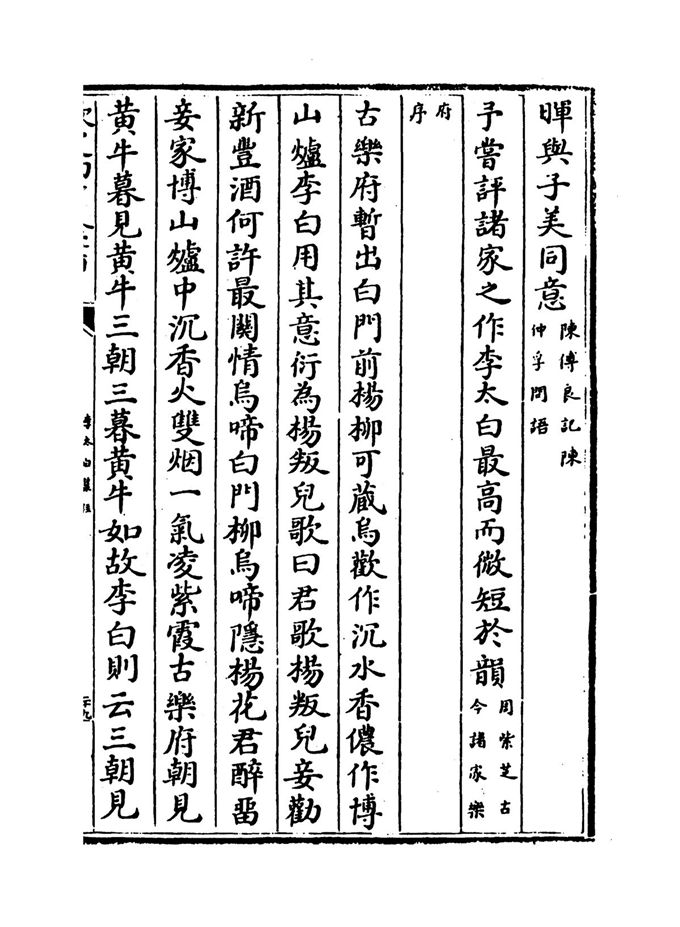 暉與子美同意陳傅良記陳
仲孚問語
予嘗評諸家之作李太白最高而微短於韻周紫芝古
今諸家樂
府
序
古樂府暫出白門前楊柳可蔵烏歡作沉水香儂作博
山爐李白用其意衍為楊叛兒歌曰君歌楊叛兒妾勸
新豐酒何許最闗情烏啼白門柳烏啼隱楊花君醉畱
妾家博山爐中沉香火雙烟一氣凌紫霞古樂府朝見
黄牛暮見黄牛三朝三暮黄牛如故李白則云三朝見
李太白集注